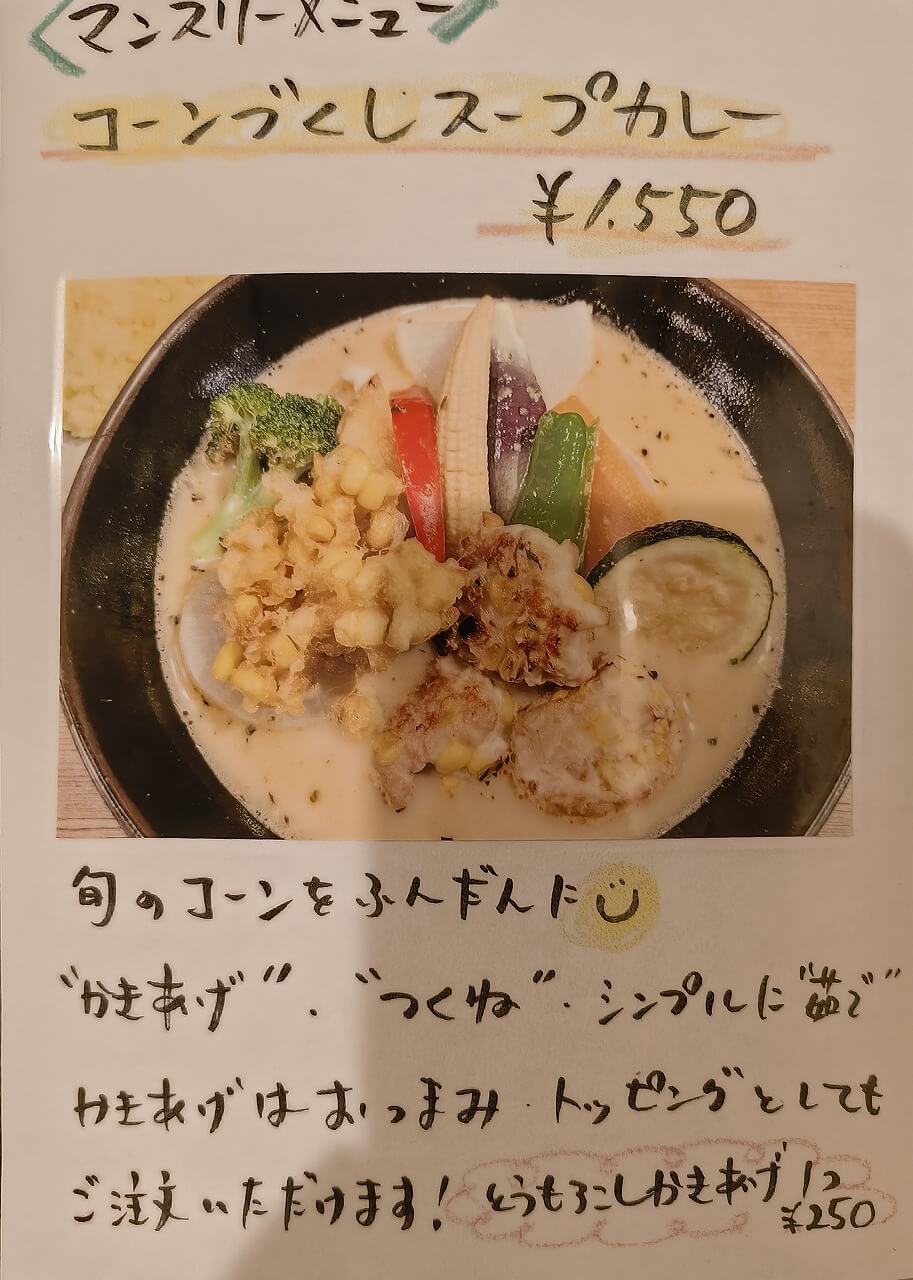 マンスリーメニュー
コーンづくしスープカレー
¥1.550
旬のコーンをふんだんに
"かきあげ"・"つくね"・シンプルに"茹で"
かきあげはおつまみ・トッピングとしても
ご注文いただけます! とうもろこしかきあげ 1コ
¥250